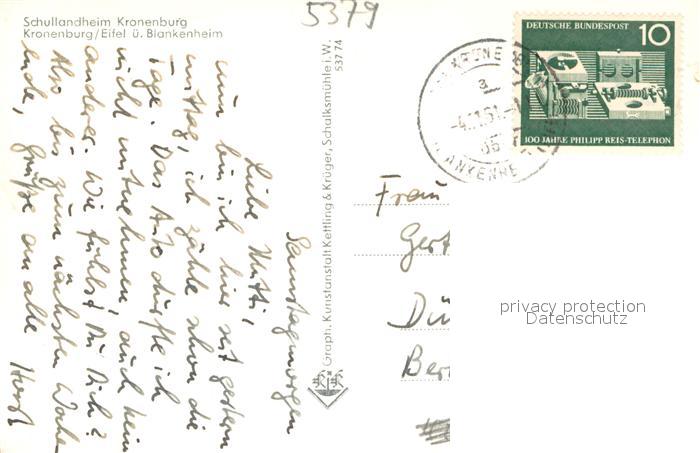 5379
Schullandheim Kronenburg
Kronenburg/Eifel ü. Blankenheim
DEUTSCHE BUNDESPOST 10
100 JAHRE PHILIPP REIS-TELEPHON
a
Graph. Kunstanstalt Kettling & Krüger, Schalksmühle i. W.
53774
Samstagmorgen
Liebe Mutti,
nun bin ich hier seit gestern
mittag, ich zähle schon die
Tage. Das Auto durfte ich
nicht mitnehmen, auch kein
anderer. Wie fühlst Du Dich?
Also bis zum nächsten Wochen
ende, Grüße an alle Horst
Frau
Gert
Dü
Ber
privacy protection
Datenschutz